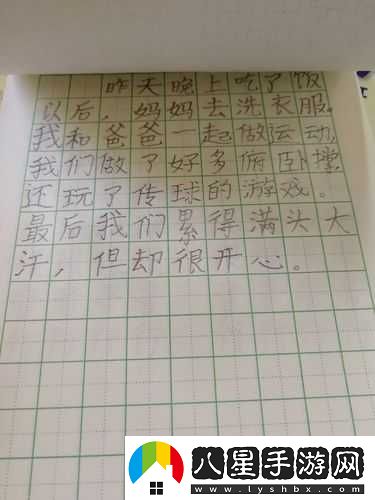 昨天晚上吃了饭
以后，妈妈去洗衣服。
我和爸爸一起做运动，
我们做了好多俯卧撑，
还玩了传球的游戏。
最后我们累得满头大
汗，但却很开心。
八星手游网
www.lyshbx.com